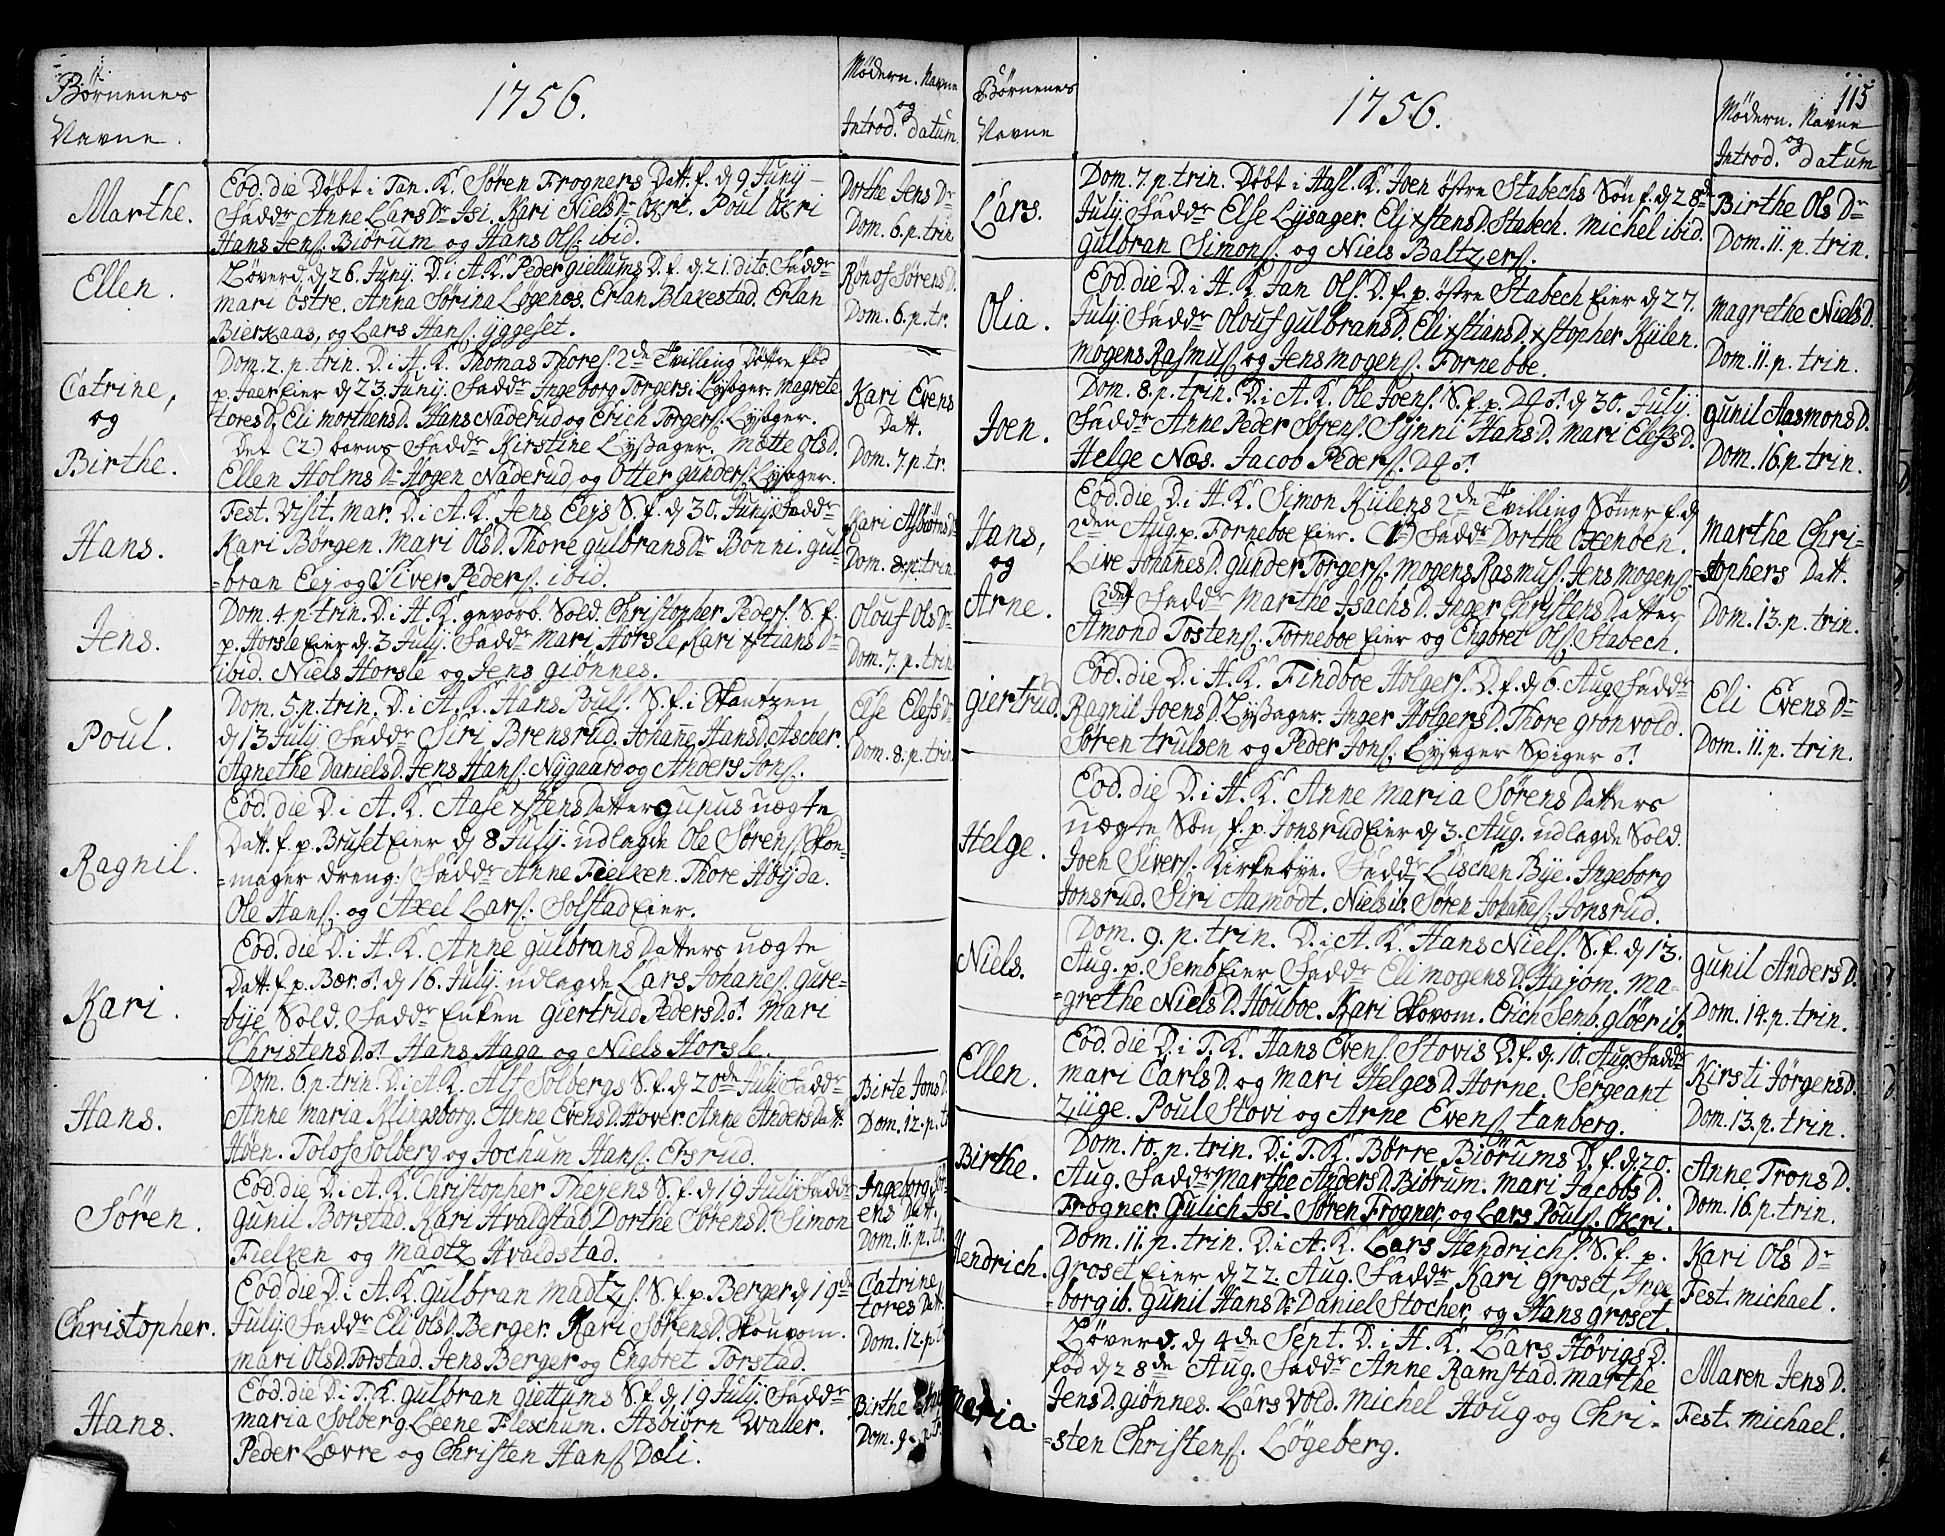 Børnenes
Navne.
1756.
Mødern. Navne
og
Introd. datum.
Marthe.
Eod. die Døbt i Tan. K. Søren Frogners Datt. f. d 9 Junij
Fadd.r Anne Lars Dr. Isi. Kari Niels Dr. Økri. Poul Økri
Hans Jens. Biørum og Hans Ols. ibid.
Dorthe Jens Dr.
Dom. 6. p. trin
Ellen.
Løverd. d 26. Junij. D. i A. K. Peder giellums D. f. d. 21. dito. Fadd.r
mari østre. Anna Sørina Løgenes. Erlan Blakestad. Erlan
Bierkaas, og Lars Hans. yggeset.
Rønof Sørens D.
Dom. 6. p. tr.
Catrine,
og
Birthe.
Dom. 2. p. trin. D. i H. K. Thomas Thores. 2de Tvilling Døttre fød
p. Jaer Eier d 23. Junij. Fadd.r Ingeborg Torgers. Lysager. Magrete
tores D. Eli morthens D. Hans Naderud og Erich Torgers. Lysager.
Det (2.) barns Fadd.r Kirstine Lyssager. Mette Ols D.
Ellen Holms Dr Hogen Naderud, og Otter gunders. Lysager.
Kari Evens
Datt.
Dom. 7. p. tr.
Hans.
Fest. Visit. mar. D. i A. K. Jens Eejs S. f. d 30. Junij. Fadd.r
Kari Børgen. Mari Ols D. Thore gulbrans Dr Bonni. gul=
=bran Eej og Siver Peders. ibid.
Kari Asbiørns Dr
Dom. 8. p. trin
Jens.
Dom. 4. p. trin. D. i H. K. gevorb. Sold. Christopher Peders. S. f.
p. Horsle Eier d 3 Julij. Fadd.r Mari Horsle, Kari xstians Dr
ibid. Niels Horsle og Jens giønnes.
Olouf Ols Dr
Dom. 7. p. trin
Poul.
Dom. 5. p. trin. D. i A. K. Hans Pouls. S. f. i Skantzen
d 13 Julij Fadd.r Siri Brensrud. Johanne Hans D. Ascher.
Agnethe Daniels D. Jens Hans. Nygaard og Anders Jons.
Else Elefs Dr
Dom. 8. p. trin
Ragnil.
Eod. die D. i A. K. Aase xstens Datter gupus uægte
Datt. f. p. Bruset Eier d 8 Julij. udlagde Ole Sørens. Skon=
=mager dreng. Fadd.r Anne Fielken. Thore Høyda.
Ole Hans. og Axel Lars. Solstad Eier.
Kari.
Eod. die D. i H. K. Anne gulbrans Datters uægte
Datt. f. p. Bær. ♂. d 16. Julij. udlagde Lars Johanes. gure=
bye Sold. Fadd.r Enken giertrud Peders D. ♂. Mari
Christens D. ♂. Hans Haga og Niels Horsle.
Hans.
Dom. 6. p. trin. D. i A. K. Alf Solbergs S. f. d 20de Julij Fadd.r
Anne Maria Klingsborg. Anne Evens D. Hover. Anne Anders Datt.
Høen. Tolof Solberg og Jochum Hans. Ersrud.
Birte Jons D.
Dom. 12. p. t
Søren.
Eod. die D. i A. K. Christopher Thezens S. f. d 19 Julij Fadd.r
gunil Borstad. Kari Hvaldstad. Dorthe Sørens D. Simon
Fielken og Madtz Hvaldstad.
Ingeborg Sør=
ens Datt.
Dom. 11. p. tr.
Christopher.
Eod. die D. i A. K. gulbran madtzs. S. f. p. Berger d 19d
Julij. Fadd.r Eli Ols D. Berger. Kari Sørens D. Skouvom.
mari Ols D. Torstad. Jens Berger og Engbret Torstad.
Catrine
tores Datt.
Dom. 12. p. t
Hans.
Eod. die D. i T. K. gulbran giettums S. f. d 19 Julij. Fadd.r
maria Solberg. Leene Fleschum. Asbiørn Waller.
Peder Lævre og Christen Hans. Dæli.
Birthe
Dom. 9.
115
Børnenes
Navne
1756.
Mødern. Navne
og
Introd. datum
Lars.
Dom. 7. p. trin. Døbt i Hasl. K. Joen østre Stabechs Søn f. d 28d
July. Fadd.r Else Lysager. Eli xstens D. Stabech. Michel ibid.
gulbran Simons. og Niels Baltzers.
Birthe Ols Dr
Dom. 11. p. trin.
Olia.
Eod. die D. i H. K. Jan Ols. D. f. p. østre Stabech Eier d 27.
Julij. Fadd.r Olouf gulbrans D. Eli xstians D. xstopher Kiilen.
Mogens Rasmus. og Jens Mogens. Forneboe.
Magrethe Niels D.
Dom. 11. p. trin.
Joen.
Dom. 8. p. trin. D. i A. K. Ole Joens. S. f. p. Dq♂. d 30. Julij.
Fadd.r Anne Peder Sørens. Synni Hans D. Mari Elefs D.
Helge Næs. Jacob Peders. Dq♂.
gunil Aasmons D.
Dom. 16. p. trin.
Hans,
og
Arne.
Eod. die D. i H. K. Simon Kiilens 2de Tvilling Sønner f. d
2den Aug. p. Forneboe Eier. (1) Fadd.r Dorthe Oxenøen.
Live Johannes D. gunder Torgers. Mogens Rasmus. Jens Mogens.
(2d) Fadd.r Marthe Isachs D. Inger Christens Datter
Amond Tostens. Forneboe Eier og Engbret Ols. Stabech.
Marthe Chri=
=stophers Datt.
Dom. 13. p. trin.
Giertrud.
Eod. die D. i H. K. Findboe Holgers. D. f. d 6. Aug. Fadd.r
Ragnil Joens D. Lyssager. Inger Holgers D. Thore grønvold.
Søren trulsen og Peder Jons. Lysager Spiger ♂.
Eli Evens Dr
Dom. 11. p. trin.
Helge.
Eod. die D. i H. K. Anne Maria Sørens Datters
uægte Søn, f. p. Jonsrud Eier d 3. Aug. udlagde Sold.
Joen Sivers. Kirkebye. Fadd.r Lischen Bye. Ingeborg
Jonsrud. Siri Aamodt. Niels ib. Søren Johanes. Jonsrud.
Niels.
Dom. 9. p. trin. D. i A. K. Hans Niels. S. f. d 13.
Aug. p. Semb Eier Fadd.r Eli Mogens D. Hajom. Ma=
=grethe Niels D. Houboe. Kari Skovom. Erich Semb. gløer ib.
gunil Anders D.
Dom. 14. p. trin.
Ellen.
Eod. die D. i T. K. Hans Evens. Stovis D. f. d. 10. Aug. Fadd.r
Mari Carls D. og Mari Helges D. Horne. Sergeant
Züge. Poul Stovi og Arne Evens. tanberg.
Kirsti Jørgens D.
Dom. 13. p. trin.
Birthe.
Dom. 10. p. trin. D. i T. K. Børre Biørums D. f. d. 20.
Aug. Fadd.r Marthe Anders D. Biørum. Mari Jacobs D.
Frogner. Gulich Isi. Søren Frogner, og Lars Pouls. Økri.
Anne Trons D.
Dom. 16. p. trin.
Hendrich.
Dom. 11. p. trin. D. i A. K. Lars Hendrichs. S. f. p.
Groset Eier d 22. Aug. Fadd.r Kari groset, Inge
=borg ib. gunil Hans Dr Daniel Stocher, og Hans groset.
Kari Ols Dr
Fest. michael.
Maria.
Løverd. d 4de Sept. D. i H. K. Lars Høvigs D.
fød d 28de Aug. Fadd.r Anne Ramstad. Marthe
Jens D. giønnes. Lars Vold. Michel Houg og Chri=
=sten Christens. Løgeberg.
Maren Jens D.
Fest. michael.